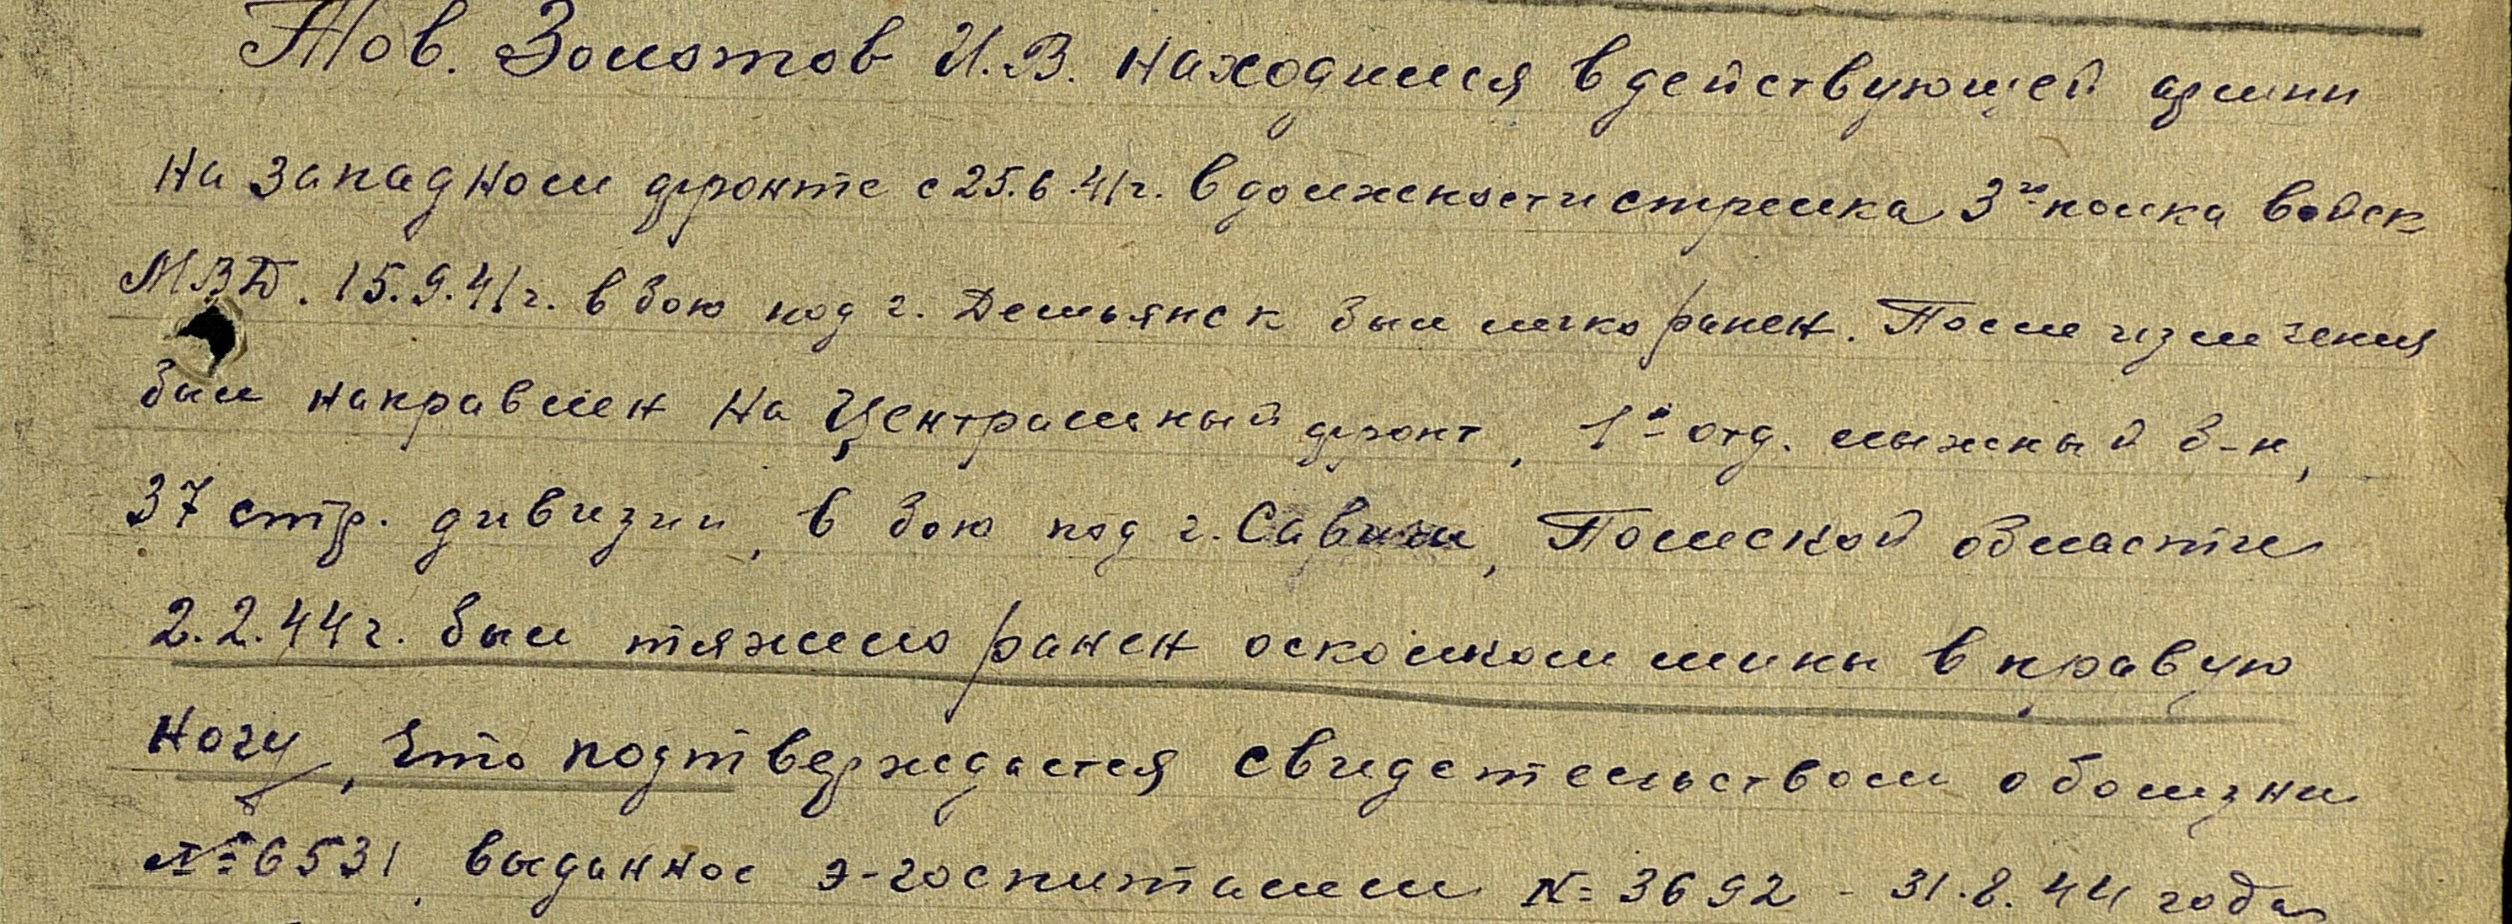 Тов. Золотов И.В. находился в действующей армии
на западном фронте с 25.6.41г. в должности стрелка 3го полка войск
МВД. 15.9.41г. в бою под г. Демьянск был легко ранен. После излечения
был направлен на Центральный фронт, 1й отд. лыжный б-н,
37 стр. дивизии, в бою под г. Савин, Полеской области
2.2.44г. был тяжело ранен осколком мины в правую
ногу, что подтверждается свидетельством о болезни
№ 6531, выданное э-госпиталем № 3692 - 31.8.44 года